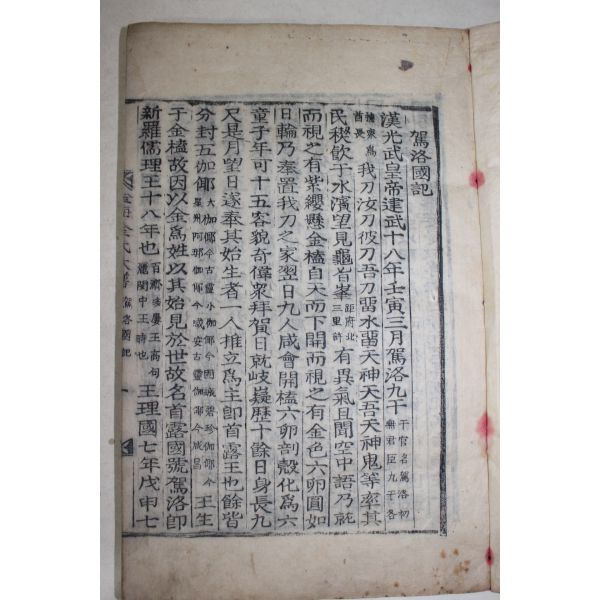 駕洛國記
漢光武皇帝建武十八年壬寅三月駕洛九干干官名駕洛初無君臣九干各
摠衆爲酋長我刀汝刀彼刀吾刀留水留天神天吾天神鬼等率其
民稧飮于水濱望見龜旨峯距府北三里許有異氣且聞空中語乃就
而視之有紫纓懸金榼自天而下開而視之有金色六卵圓如
日輪乃奉置我刀之家翌日九人咸會開榼六卵剖殼化爲六
童子年可十五容貌奇偉衆拜賀日就岐嶷歷十餘日身長九
尺是月望日遂奉其始生者一人推立爲主卽首露王也餘皆
分封五伽倻大伽倻今古靈小伽倻今固城碧珍伽倻今星州阿那伽倻今咸安古靈伽倻今咸昌王生
于金榼故因以金爲姓以其始見於世故名首露國號駕洛卽
新羅儒理王十八年也百濟婁王高句麗閔中王時也王理國七年戊申七
駕洛國記